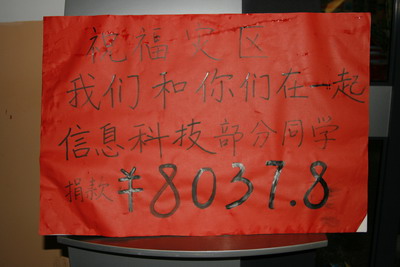 祝福灾区
我们和你们在一起
信息科技部分同学
捐款¥8037.8